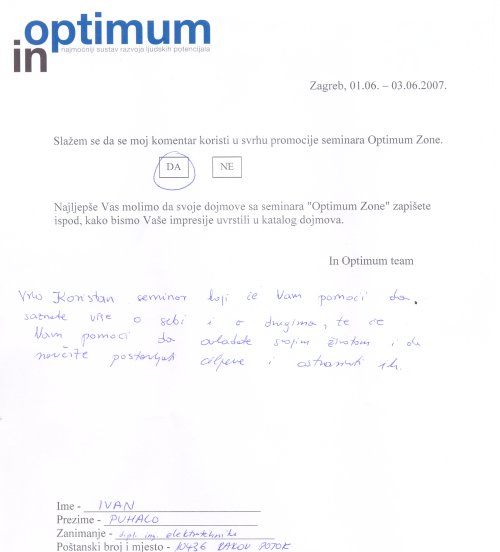 in optimum
najmoćniji sustav razvoja ljudskih potencijala
Zagreb, 01.06. – 03.06.2007.
Slažem se da se moj komentar koristi u svrhu promocije seminara Optimum Zone.
DA NE
Najljepše Vas molimo da svoje dojmove sa seminara "Optimum Zone" zapišete
ispod, kako bismo Vaše impresije uvrstili u katalog dojmova.
In Optimum team
Vrlo koristan seminar koji će Vam pomoći da
saznate više o sebi i o drugima, te će
Vam pomoći da ovladate svojim životom i da
naučite postavljati ciljeve i ostvariti ih.
Ime - IVAN
Prezime - PUHALO
Zanimanje - dipl. ing. elektrotehnike
Poštanski broj i mjesto - 10436 RAKOV POTOK